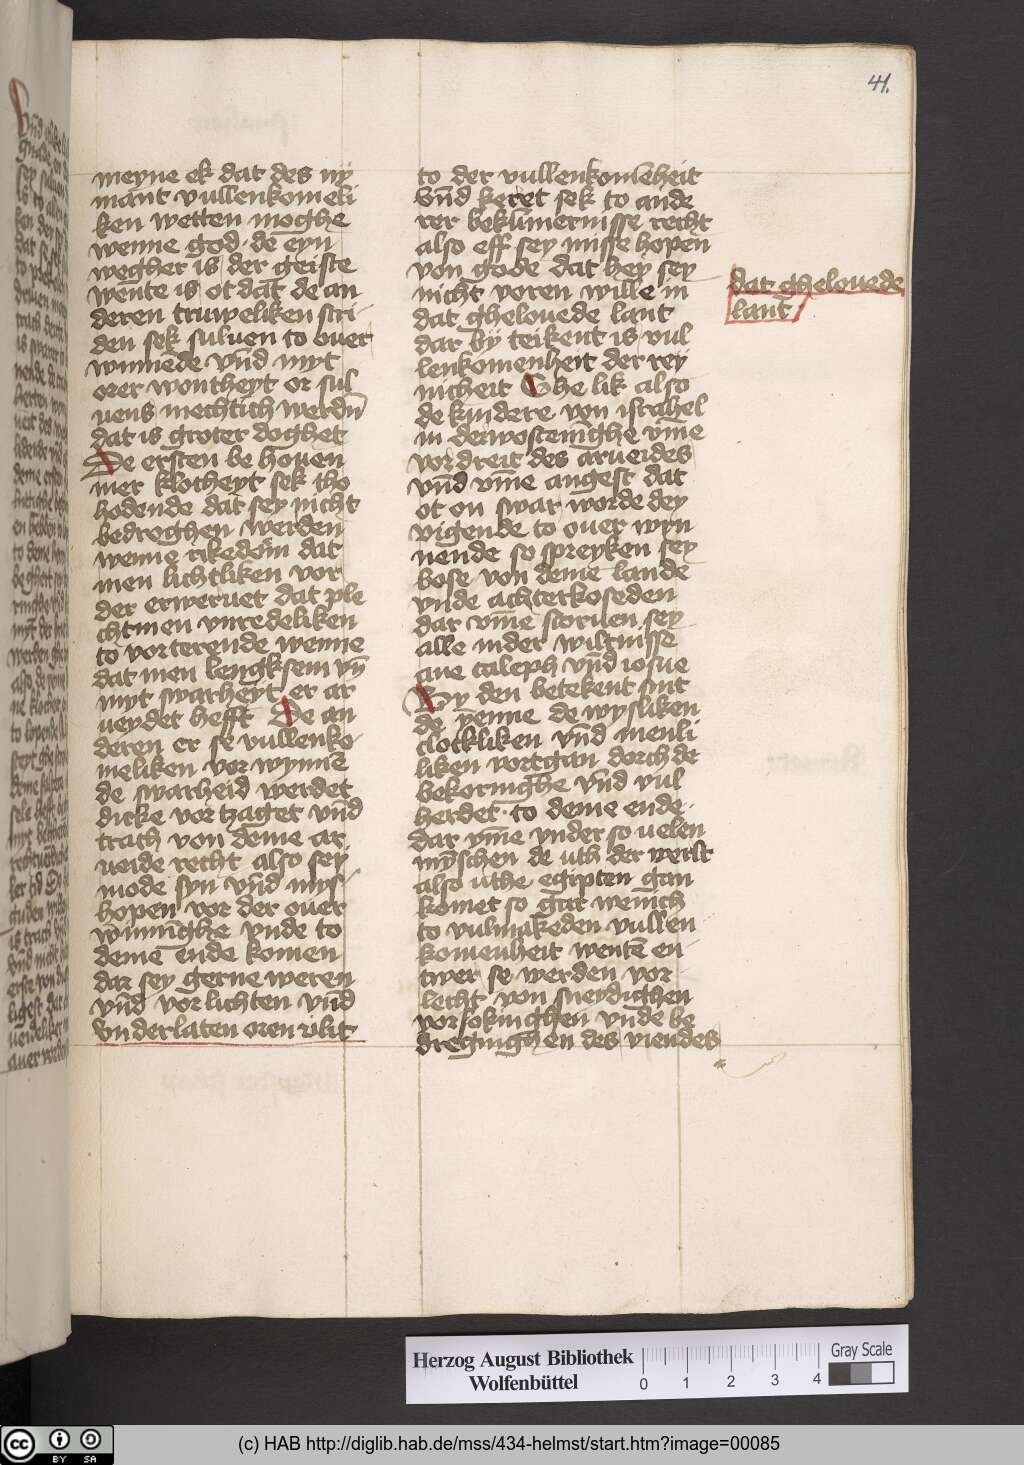 41.
meyne ek dat des nÿ
mānt vullenkomeli
ken wetten moghe
wenne god· de eyn
wegher is der geiste
wente is ot dat de an
deren truweliken stri
den sek suluen to ouer
wīnēde vn̄d myt
orer wontheyt or sul
uens mechtich werdn̄
dat is groter doghet
De ersten be houen
mer klotheyt sek tho
hodende dat sey nicht
bedreghen werden
wenne rikedōm dat
men lichtliken vor
der erweruet dat ple
chtmen vnredeliken
to vorterende wenne
dat men lengksem vn̄
myt swarheyt er ar
ueydet hefft De an
deren er se vullenko
meliken vor wynnē
de swarheid werdet
dicke vor tzaget vn̄d
trach von deme ar
ueide recht also sey
mode syn vn̄d mys
hopen vor der ouer
wīnīghe vnde to
deme ende komen
dar sey gerne weren
vn̄d vor lichten vn̄d
vnderlaten oren vlit
to der vullenkomēheit
vn̄d keret sek to ande
rer bekūmernisse recht
also eff sey misse hopen
von gode dat hey sey
nicht voren wille in
dat ghelouede lant
dar bÿ teikent is vul
lenkomenheit der rey
nicheit Ghe lik also
de kindere von israhel
in der wostenīghe vm̄e
vordreit des arueides
vn̄d vm̄e angest dat
ot on swar worde dey
vigende to ouer wyn
nende so spreyken sey
bose von deme lande
vnde achterkoseden
dar vm̄e storuen sey
alle inder wiltnisse
ane caleph vn̄d iosue
By den betekent sint
de yenne de wysliken
clockliken vn̄d menli
liken vortgan dorch de
bekeringhe vn̄d vul
herdet· to deme ende·
dar vm̄e vnder so uelen
mÿschen de uth der werlt
also uthe egipten gan
komet so gar wenich
to vulmakeden vullen
komenheit wentē en
twer se werden vor
lecht von sneydighen
vorsokinghen vnde be
dregnighen des viendes
dat ghelouede
lant
Herzog August Bibliothek
Wolfenbüttel
0 1 2 3 4
Gray Scale
cc BY SA
(c) HAB http://diglib.hab.de/mss/434-helmst/start.htm?image=00085